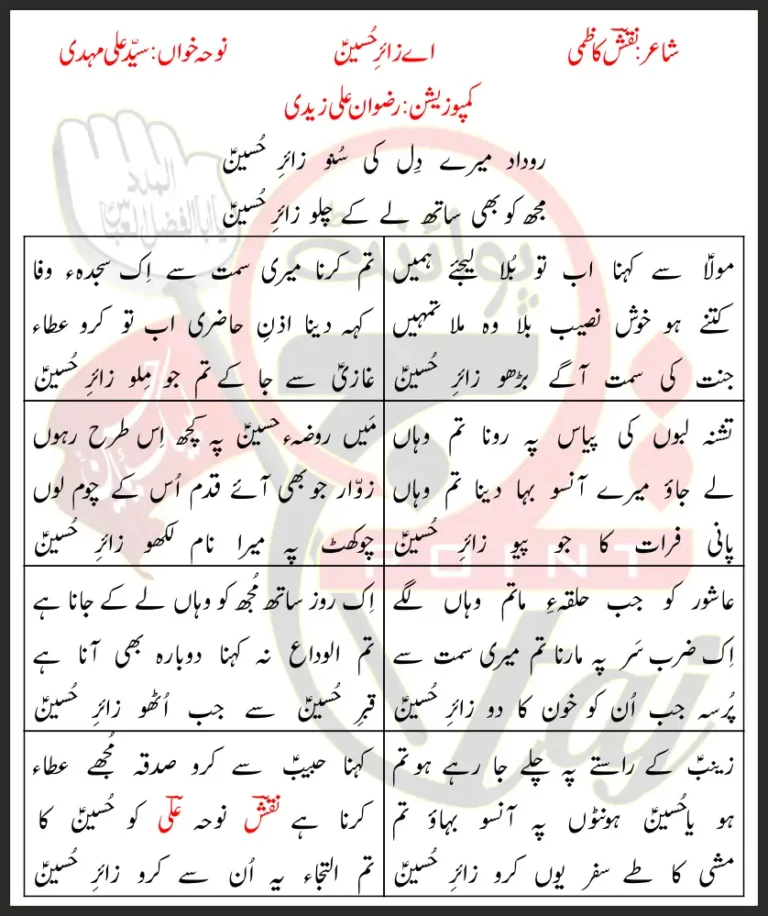 شاعر: نقشؔ کاظمی
اے زائرِ حُسینؑ
نوحہ خواں: سیّد علی مہدی
کمپوزیشن: رضوان علی زیدی
روداد میرے دِل کی سُنو زائرِ حُسینؑ
مجھ کو بھی ساتھ لے کے چلو زائرِ حُسینؑ
مولاؑ سے کہنا اب تو بُلا لیجئے ہمیں
کتنے ہو خوش نصیب بلا وہ ملا تمہیں
جنت کی سمت آگے بڑھو زائرِ حُسینؑ
تم کرنا میری سمت سے اِک سجدہء وفا
کہہ دینا اذنِ حاضری اب تو کرو عطاء
غازیؑ سے جا کے تم جو مِلو زائرِ حُسینؑ
تشنہ لبوں کی پیاس پہ رونا تم وہاں
لے جاؤ میرے آنسو بہا دینا تم وہاں
پانی فرات کا جو پیو زائرِ حُسینؑ
مَیں روضہء حسینؑ پہ کچھ اِس طرح رہوں
زوّار جو بھی آئے قدم اُس کے چوم لوں
چوکھٹ پہ میرا نام لکھو زائرِ حُسینؑ
عاشور کو جب حلقہءِ ماتم وہاں لگے
اِک ضرب سَر پہ مارنا تم میری سمت سے
پُرسہ جب اُن کو خون کا دو زائرِ حُسینؑ
اِک روز ساتھ مُجھ کو وہاں لے کے جانا ہے
تم الوداع نہ کہنا دوبارہ بھی آنا ہے
قبرِ حُسینؑ سے جب اُٹھو زائرِ حُسینؑ
زینبؑ کے راستے پہ چلے جا رہے ہو تم
ہو یاحُسینؑ ہونٹوں پہ آنسو بہاؤ تم
مشی کا طے سفر یوں کرو زائرِ حُسینؑ
کہنا حبیبؑ سے کرو صدقہ مُجھے عطاء
کرنا ہے نقشؔ نوحہ علیؔ کو حُسینؑ کا
تم التجاء یہ اُن سے کرو زائرِ حُسینؑ
المدد
یا اباالفضل العباسؑ
پوائنٹ
POINT
taj